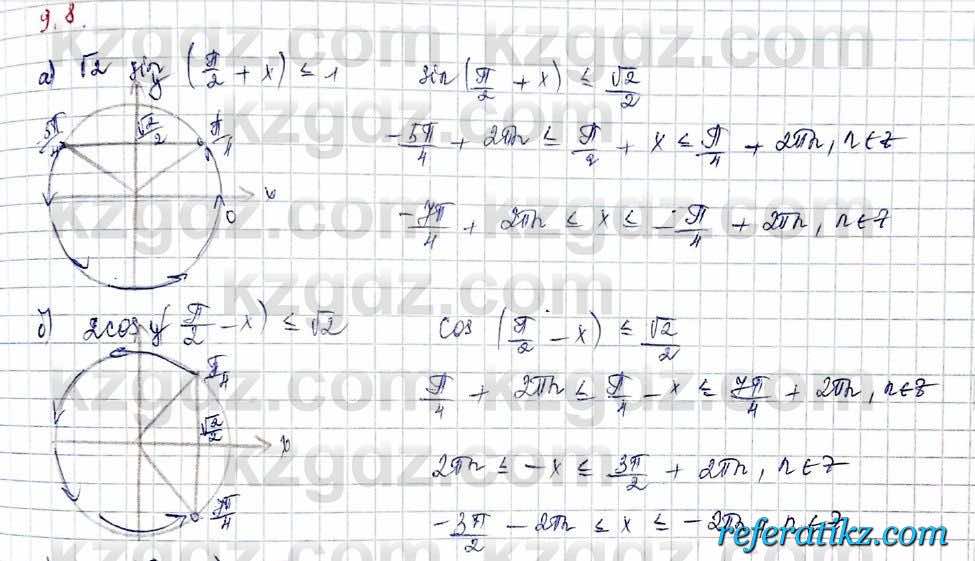 9.8.
а) √2 sin (π/2 + x) ≤ 1
sin (π/2 + x) ≤ √2/2
y
3π/4 √2/2 π/4
x
0
-5π/4 + 2πn ≤ π/2 + x ≤ π/4 + 2πn, n∈Z
-7π/4 + 2πn ≤ x ≤ -π/4 + 2πn, n∈Z
б) 2cos (π/2 - x) ≤ √2
cos (π/2 - x) ≤ √2/2
y
π/4
√2/2
x
7π/4
π/4 + 2πn ≤ π/4 - x ≤ 7π/4 + 2πn, n∈Z
2πn ≤ -x ≤ 3π/2 + 2πn, n∈Z
-3π/2 - 2πn ≤ x ≤ -2πn, n∈Z
kzgdz.com kzgdz.com
referatikz.com